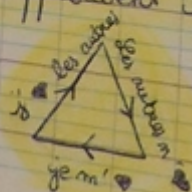 j'
les autres
Les autres m'
je m'